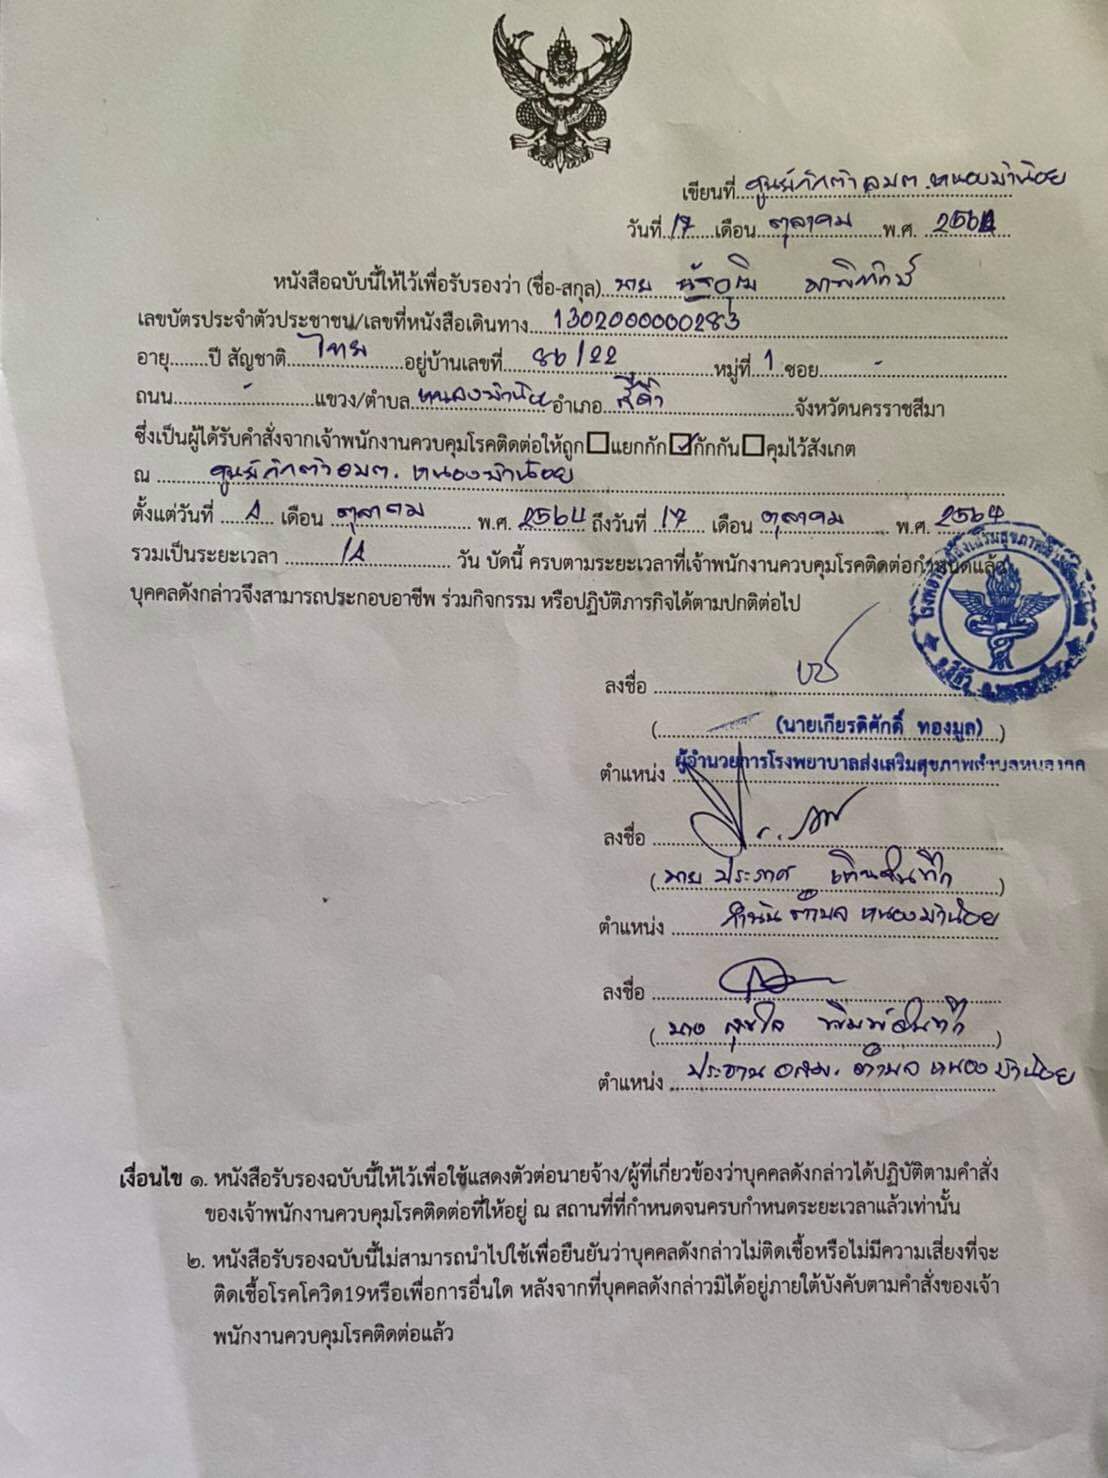 เขียนที่ ศูนย์กักตัว อบต. หนองหญ้าน้อย
วันที่ 17 เดือน ตุลาคม พ.ศ. 2564
หนังสือฉบับนี้ให้ไว้เพื่อรับรองว่า (ชื่อ-สกุล) นาย
เลขบัตรประจำตัวประชาชน/เลขที่หนังสือเดินทาง 1302000000283
อายุ ปี สัญชาติ ไทย อยู่บ้านเลขที่ 86/22 หมู่ที่ 1 ซอย -
ถนน - แขวง/ตำบล หนองหญ้าน้อย อำเภอ สีคิ้ว จังหวัดนครราชสีมา
ซึ่งเป็นผู้ได้รับคำสั่งจากเจ้าพนักงานควบคุมโรคติดต่อให้ถูก ☐แยกกัก ☑กักกัน ☐คุมไว้สังเกต
ณ ศูนย์กักตัว อบต. หนองหญ้าน้อย
ตั้งแต่วันที่ 4 เดือน ตุลาคม พ.ศ. 2564 ถึงวันที่ 17 เดือน ตุลาคม พ.ศ. 2564
รวมเป็นระยะเวลา 14 วัน บัดนี้ ครบตามระยะเวลาที่เจ้าพนักงานควบคุมโรคติดต่อกำหนดแล้ว
บุคคลดังกล่าวจึงสามารถประกอบอาชีพ ร่วมกิจกรรม หรือปฏิบัติภารกิจได้ตามปกติต่อไป
ลงชื่อ
(นายเกียรติศักดิ์ ทองมูล)
ตำแหน่ง ผู้อำนวยการโรงพยาบาลส่งเสริมสุขภาพตำบล
ลงชื่อ
(นาย ประกาศ)
ตำแหน่ง กำนัน ตำบล หนองหญ้าน้อย
ลงชื่อ
(นาง สุขใจ)
ตำแหน่ง ประธาน อสม. ตำบล หนองหญ้าน้อย
เงื่อนไข ๑. หนังสือรับรองฉบับนี้ให้ไว้เพื่อใช้แสดงตัวต่อนายจ้าง/ผู้ที่เกี่ยวข้องว่าบุคคลดังกล่าวได้ปฏิบัติตามคำสั่ง
ของเจ้าพนักงานควบคุมโรคติดต่อที่ให้อยู่ ณ สถานที่ที่กำหนดจนครบกำหนดระยะเวลาแล้วเท่านั้น
๒. หนังสือรับรองฉบับนี้ไม่สามารถนำไปใช้เพื่อยืนยันว่าบุคคลดังกล่าวไม่ติดเชื้อหรือไม่มีความเสี่ยงที่จะ
ติดเชื้อโรคโควิด19หรือเพื่อการอื่นใด หลังจากที่บุคคลดังกล่าวมิได้อยู่ภายใต้บังคับตามคำสั่งของเจ้า
พนักงานควบคุมโรคติดต่อแล้ว